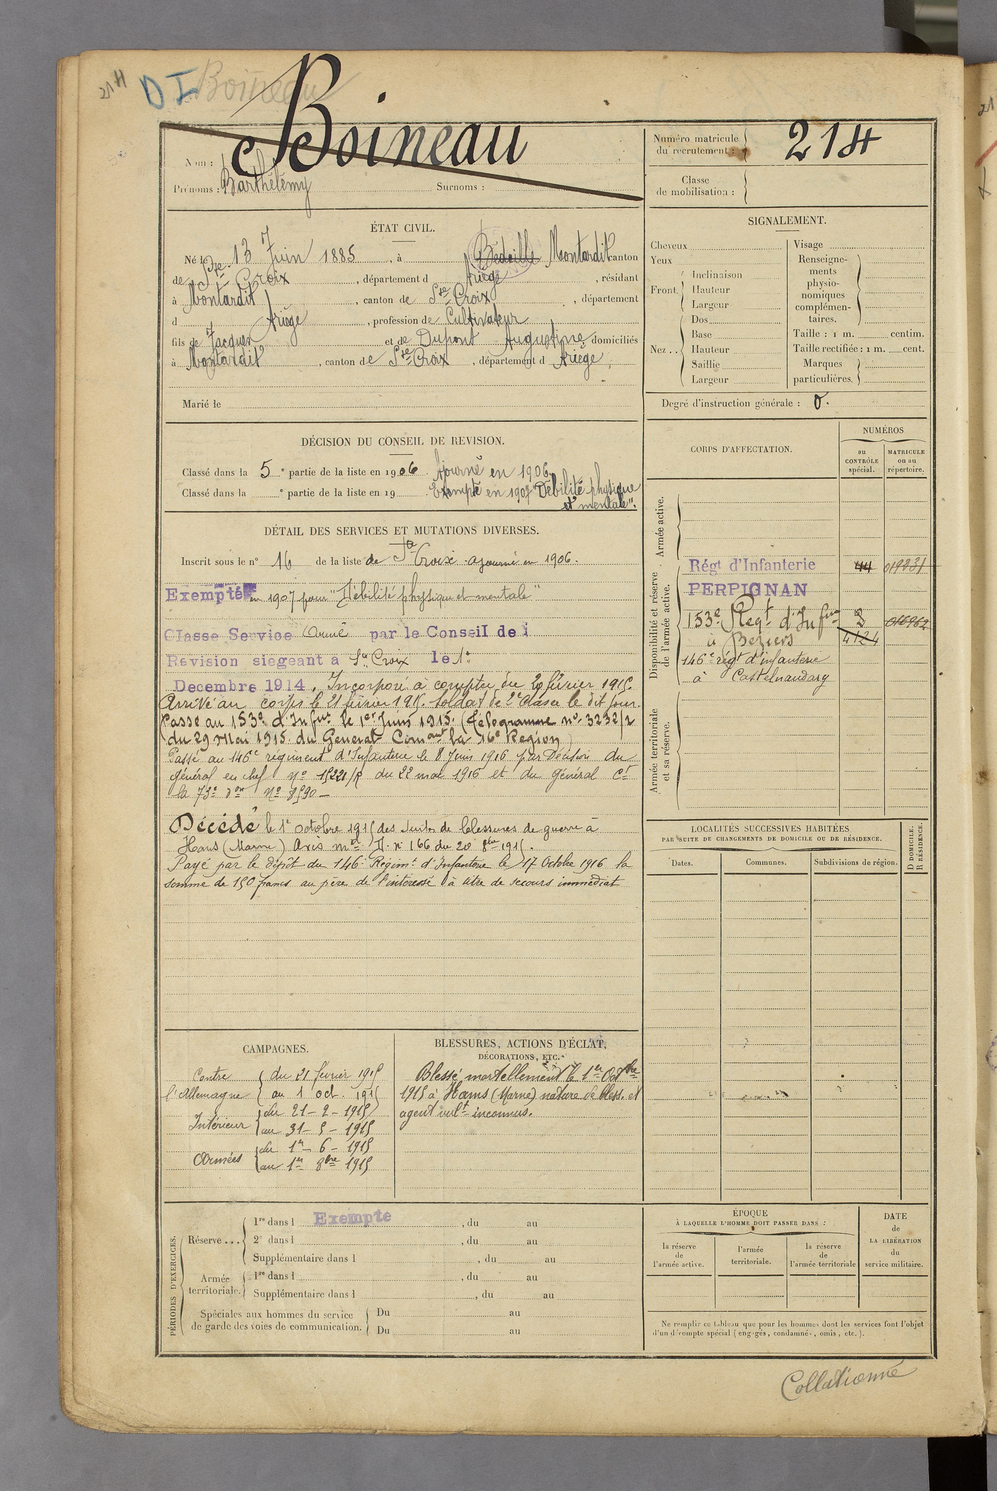 214
D I Boineau
Boineau
Nom :
Prénoms : Barthélemy Surnoms :
Numéro matricule du recrutement : 214
Classe de mobilisation :
ÉTAT CIVIL.
Né le 13 Juin 1885, à Bédeille Montardit canton
de Ste Croix, département d Ariège, résidant
à Montardit, canton de Ste Croix, département
d Ariège, profession de Cultivateur
fils de Jacques et de Dupont Augustine domiciliés
à Montardit, canton de Ste Croix, département d Ariège.
Marié le
SIGNALEMENT.
Cheveux
Yeux
Front. Inclinaison
Hauteur
Largeur
Nez .. Dos
Base
Hauteur
Saillie
Largeur
Visage
Renseignements physionomiques complémentaires.
Taille : 1 m. centim.
Taille rectifiée : 1 m. cent.
Marques particulières.
Degré d'instruction générale : 0.
DÉCISION DU CONSEIL DE REVISION.
Classé dans la 5 e partie de la liste en 1906. Ajourné en 1906
Classé dans la e partie de la liste en 19 Exempté en 1907 "Débilité physique
et mentale".
DÉTAIL DES SERVICES ET MUTATIONS DIVERSES.
Inscrit sous le n° 16 de la liste de Ste Croix ajourné en 1906.
Exempté en 1907 pour "Débilité physique et mentale"
Classe Service Armé par le Conseil de
Revision siegeant à Ste Croix le 1er
Decembre 1914. Incorporé à compter du 20 février 1915.
Arrivé au corps le 21 février 1915. soldat de 2e classe le dit jour.
Passé au 153e d'Infie le 1er Juin 1915. (Télégramme n° 3232/2
du 29 Mai 1915. du Général Comant la 16e Région)
Passé au 146e régiment d'Infanterie le 8 Juin 1916 par Décision du
général en chef n° 15221/R du 22 mai 1916 et du général Ct
la 73e don n° 8590 -
Décédé le 1er octobre 1915 des suites de blessures de guerre à
Hans (Marne) Avis mel n° 166 du 20 8bre 1915.
Payé par le dépôt du 146e Régimt d'Infanterie le 17 Octobre 1916 la
somme de 150 francs au père de l'intéressé à titre de secours immédiat
CORPS D'AFFECTATION.
NUMÉROS
au CONTRÔLE spécial.
MATRICULE ou au répertoire.
Armée active.
Disponibilité et réserve de l'armée active.
Régt d'Infanterie 44
PERPIGNAN
153e Régt d'Infie
à Béziers 4124
146e régt d'infanterie
à Castelnaudary
Armée territoriale et sa réserve.
LOCALITÉS SUCCESSIVES HABITÉES
PAR SUITE DE CHANGEMENTS DE DOMICILE OU DE RÉSIDENCE.
Dates. Communes. Subdivisions de région.
D DOMICILE. R RÉSIDENCE.
CAMPAGNES.
Contre l'Allemagne du 21 février 1915
au 1 oct. 1915
Intérieur du 21-2-1915
au 31-5-1915
Armées du 1er-6-1915
au 1er 8bre 1915
BLESSURES, ACTIONS D'ÉCLAT,
DÉCORATIONS, ETC.
Blessé mortellement le 1er Octbre
1915 à Hans (Marne) nature de bless. et
agent vult inconnus.
PÉRIODES D'EXERCICES.
Réserve ... 1re dans l Exempte, du au
2e dans l, du au
Supplémentaire dans l, du au
Armée territoriale. 1re dans l, du au
Supplémentaire dans l, du au
Spéciales aux hommes du service de garde des voies de communication. Du au
Du au
ÉPOQUE
À LAQUELLE L'HOMME DOIT PASSER DANS :
la réserve de l'armée active.
l'armée territoriale.
la réserve de l'armée territoriale
DATE de LA LIBÉRATION du service militaire.
Ne remplir ce tableau que pour les hommes dont les services font l'objet
d'un décompte spécial (engagés, condamnés, omis, etc.).
Collationné